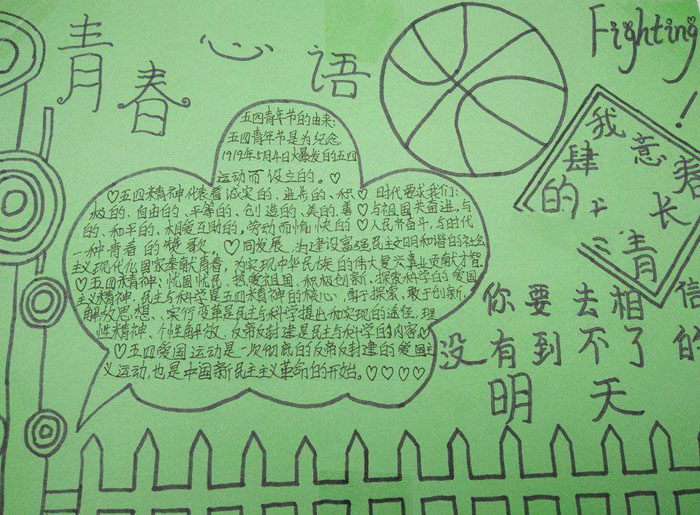 青春心语
Fighting!
我
肆意
的 长
青
五四青年节的由来:
五四青年节是为纪念
1919年5月4日爆发的五四
运动而设立的。
♡五四精神代表着诚实的、进步的、积♡时代要求我们:
极的、自由的、平等的、创造的、美的、善♡与祖国共奋进,与
的、和平的、相爱互助的,劳动而愉快的♡人民齐奋斗,与时代
一种青春的赞歌。♡同发展,为建设富强民主文明和谐的社会
主义现代化国家奉献青春,为实现中华民族的伟大复兴事业贡献才智
♡五四精神:忧国忧民、热爱祖国、积极创新、探索科学的爱国
主义精神,民主与科学是五四精神的核心,勇于探索、敢于创新、
解放思想、实行变革是民主与科学提出和实现的途径,理
性精神、个性解放、反帝反封建是民主与科学的内容。
♡五四爱国运动是一次彻底的反帝反封建的爱国主
义运动,也是中国新民主主义革命的开始。♡♡♡♡
你要去相信
没有到不了的
明天